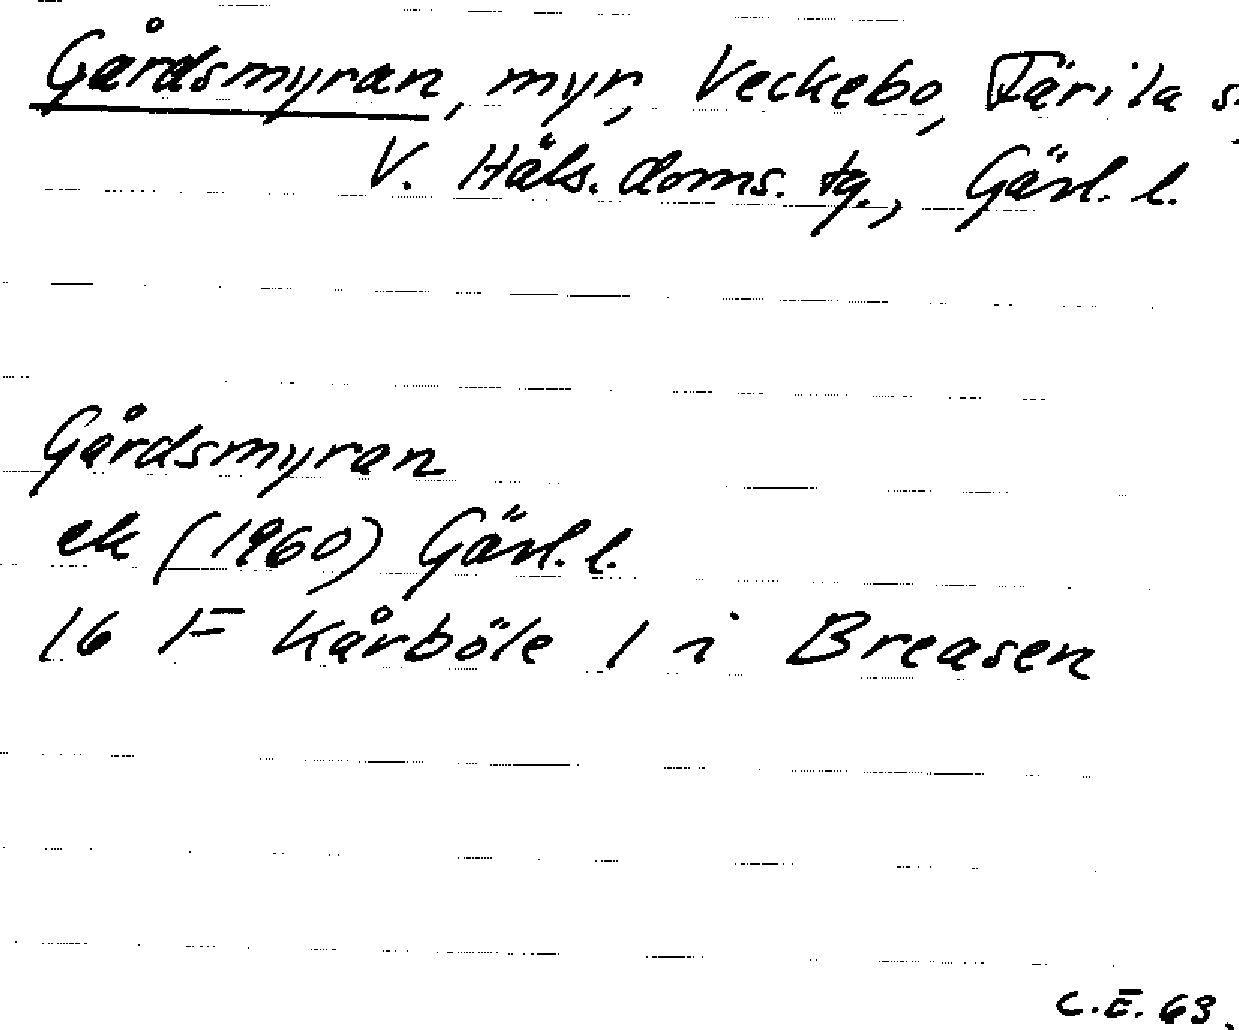 Gårdsmyran, myr, Veckebo, Färila s
V. Häls. doms. tg., Gävl. l.
Gårdsmyran
ek (1960) Gävl. l.
16 F Kårböle 1 i Breasen
C.E. 63.